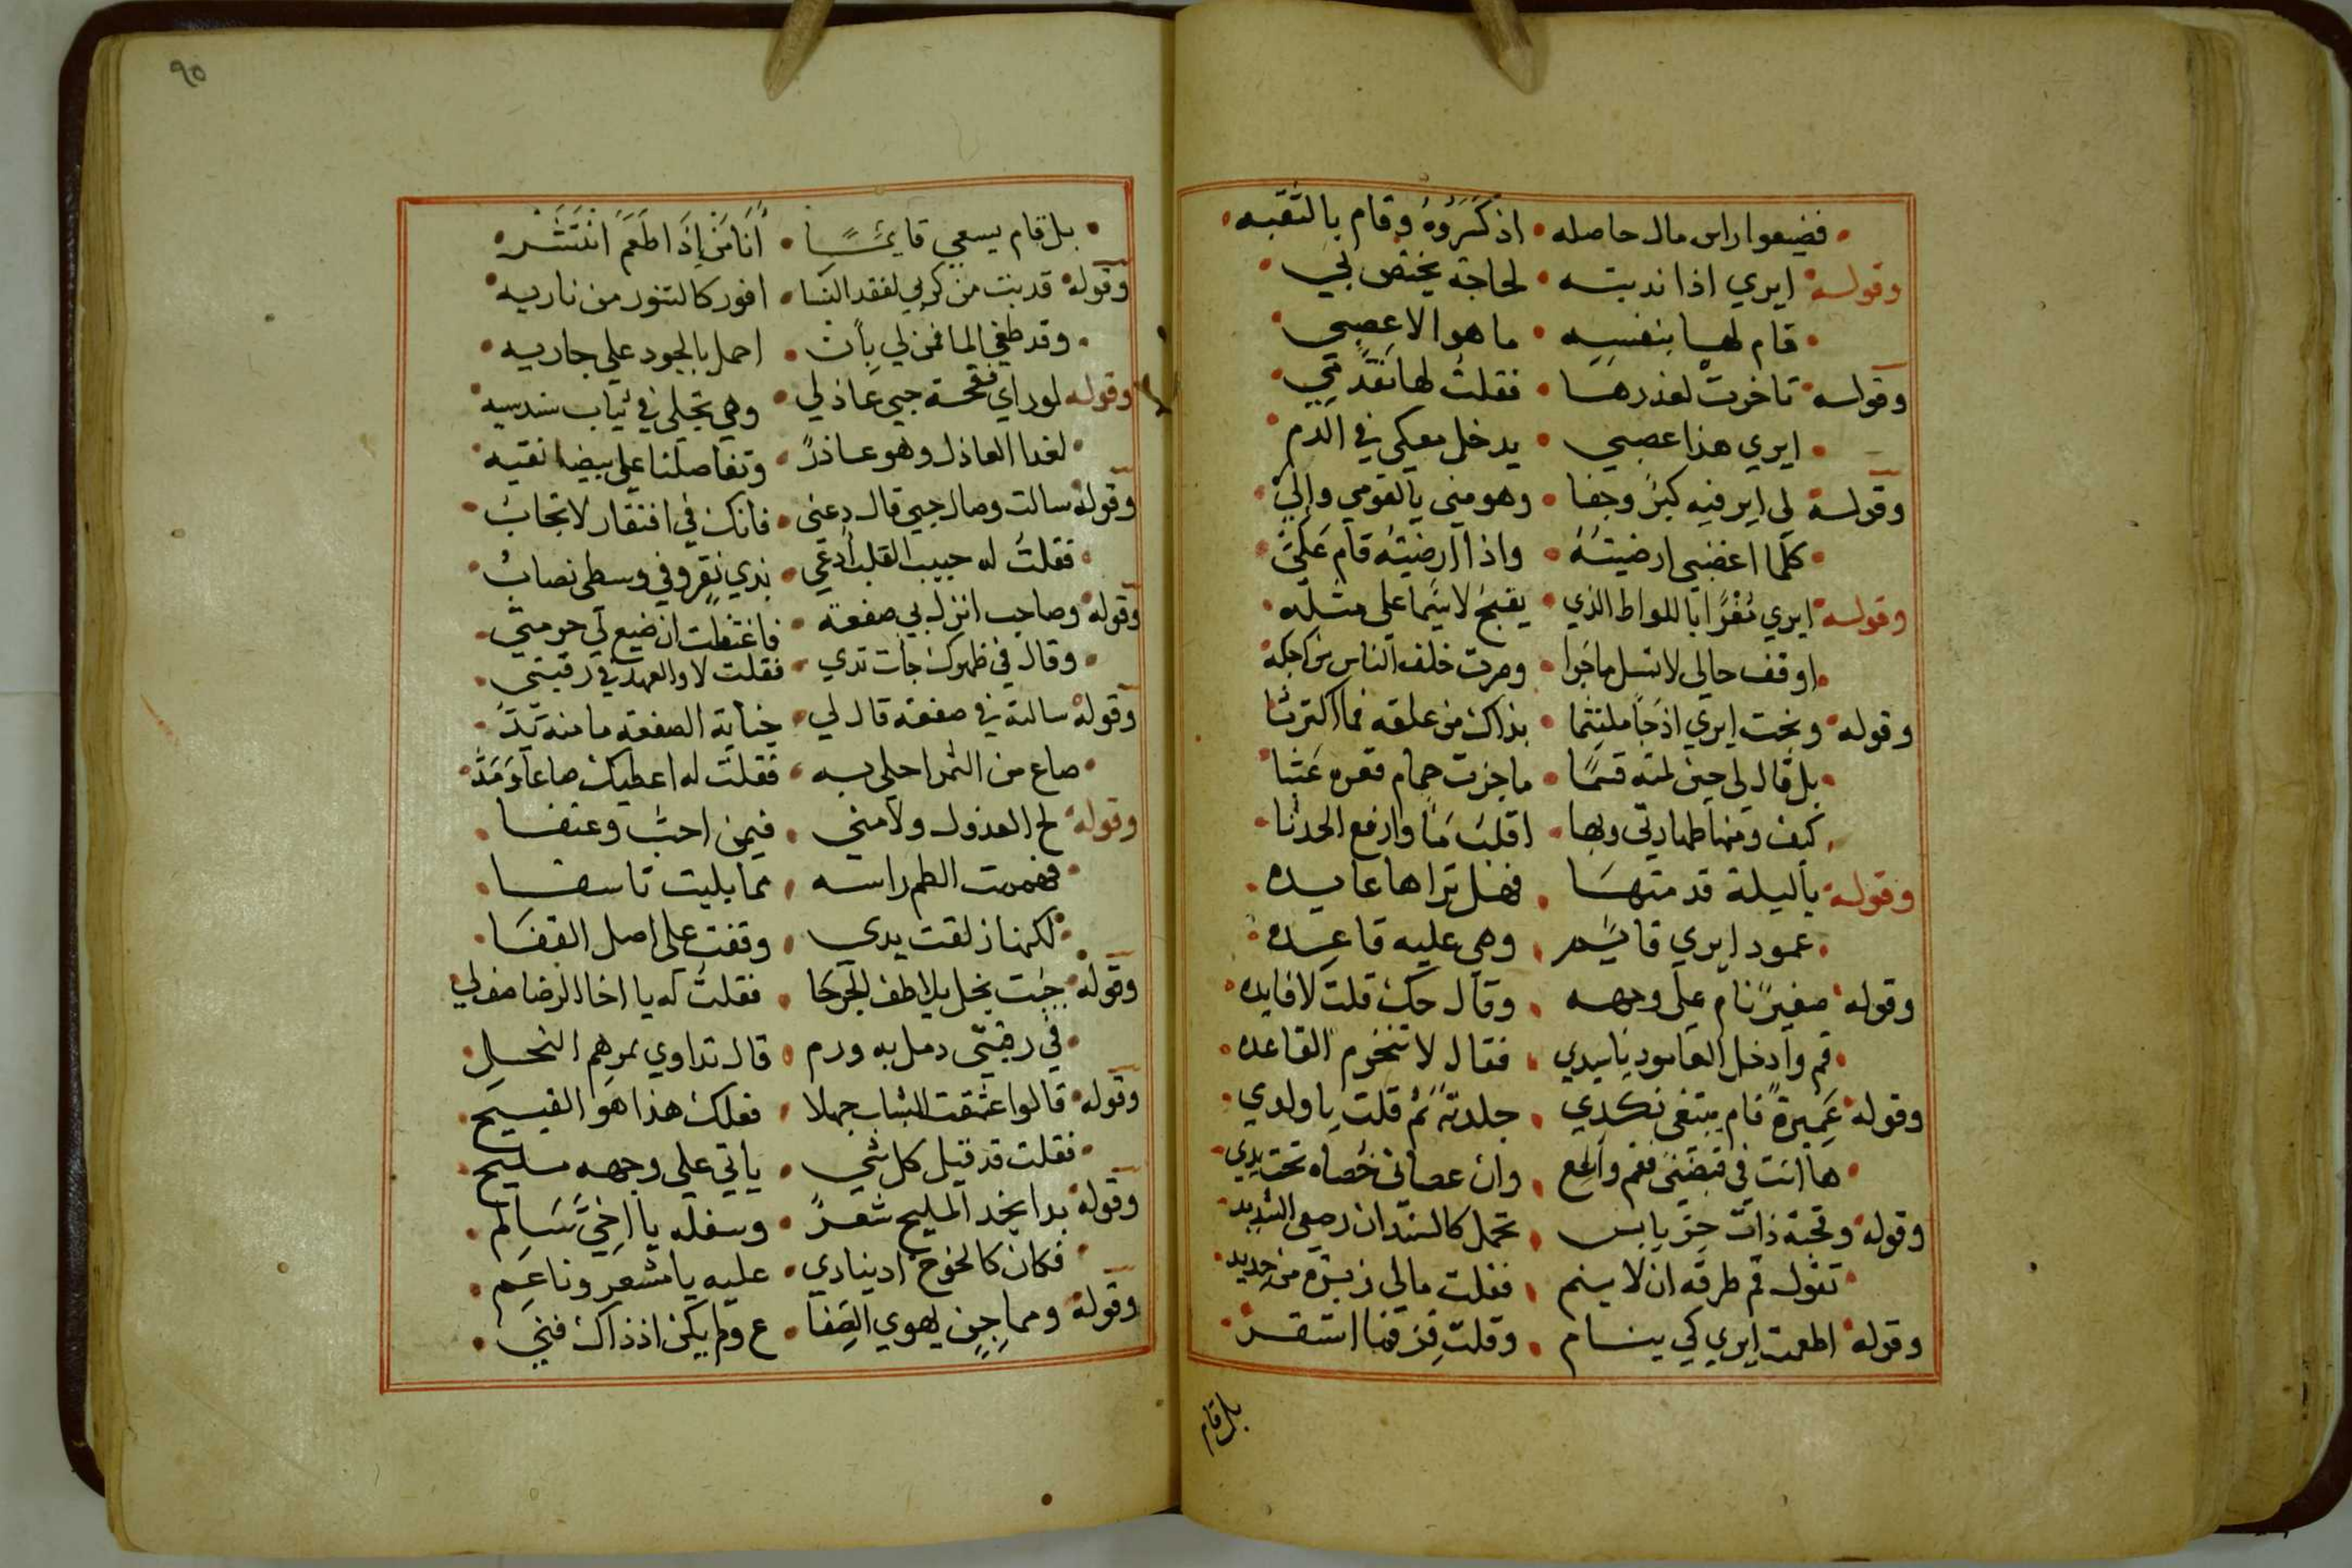 فضيعوا راس مال حاصله • اذ كسروه وقام بالتقبه
وقوله ايري اذا ندبته • لحاجة يختص بي
قام لها بنفسه • ما هو الا عصبي
وقوله تاخرت لعذرها • فقلت لها تقدمي
ايري هذا عصبي • يدخل معكي في الدم
وقوله لي اير فيه كبر وجفا • وهو مني يالقومي والي
كلما اغضبني ارضيته • واذا ارضيته قام علي
وقوله ايري مغرا باللواط الذي • يقبح لا سيما على مثله
اوقف حالي لا تسل ما جرا • ومرت خلف الناس من اجله
وقوله وبخت ايري اذ جا ملتثما • بذاك من علقه فما اكترثا
بل قال لي حين لمته قسما • ما جزت حمام قعره عبثا
كيف ومنها طهارتي وبها • اقلب ما وارفع الحدثا
وقوله ياليلة قد متها • فهل تراها عايده
عمود ايري قايم • وهي عليه قاعده
وقوله صغير نام على وجهه • وقال حك قلت لا فايده
قم وادخل العامود ياسيدي • فقال لا تنخرم القاعده
وقوله عميرة نام يبتغي نكدي • جلدته ثم قلت يا ولدي
ها انت في قبضتي فقم والمع • وان عصاني خصاه تحت يدي
وقوله وقحبة ذات حر يابس • تحمل كالسندان رصعي الشديد
تقول قم طرقه ان لا ينم • فقلت مالي زبره من حديد
وقوله اطعمت ايري كي ينام • وقلت قرفما استقر
بل قام
٩٥
بل قام يسعي قايما • انا من اذا طعم انتشر
وقوله قد بت من كربي لفقد النسا • افور كالتنور من ناريه
وقد طغي الما فمن لي بان • احمل بالجود علي جاريه
وقوله لو راي فقحة حبي عاذلي • وهي تجلي في ثياب سندسيه
لغدا العاذل وهو عاذر • وتفاصلنا علي بيضا نقيه
وقوله سالت وصال حبي قال دعني • فانك في افتقار لا تجاب
فقلت له حبيب القلب ادعي • بذي فقر وفي وسطي نصاب
وقوله وصاحب انزل بي صفعة • فاغتظت ان ضيع لي حرمتي
وقال في ظهرك جات يدي • فقلت لا والعهد في رقبتي
وقوله سالته في صفعة قال لي • جناية الصفعه ما منه بد
صاع من التمر احلي به • فقلت له اعطيك صاعا ومد
وقوله لح العذول ولامني • فيمن احب وعنفا
فهممت الطم راسه • مما بليت تاسفا
لكنها زلقت يدي • وقفت على اصل القفا
وقوله جيت بخل يلاطف الجرحا • فقلت له يا اخا الرضا صف لي
في رقبتي دمل به ورم • قال تداوي بمرهم النحل
وقوله قالوا عشقت الشباب جهلا • فعلك هذا هو القبيح
فقلت قد قيل كل شي • ياتي علي وجهه مليح
وقوله بدا بخد المليح شعر • وسفله يا اخي سالم
فكان كالخوخ اذ ينادي • عليه يا مشعر وناعم
وقوله ومماجن يهوي الصفا • ع ولم يكن اذ ذاك فني